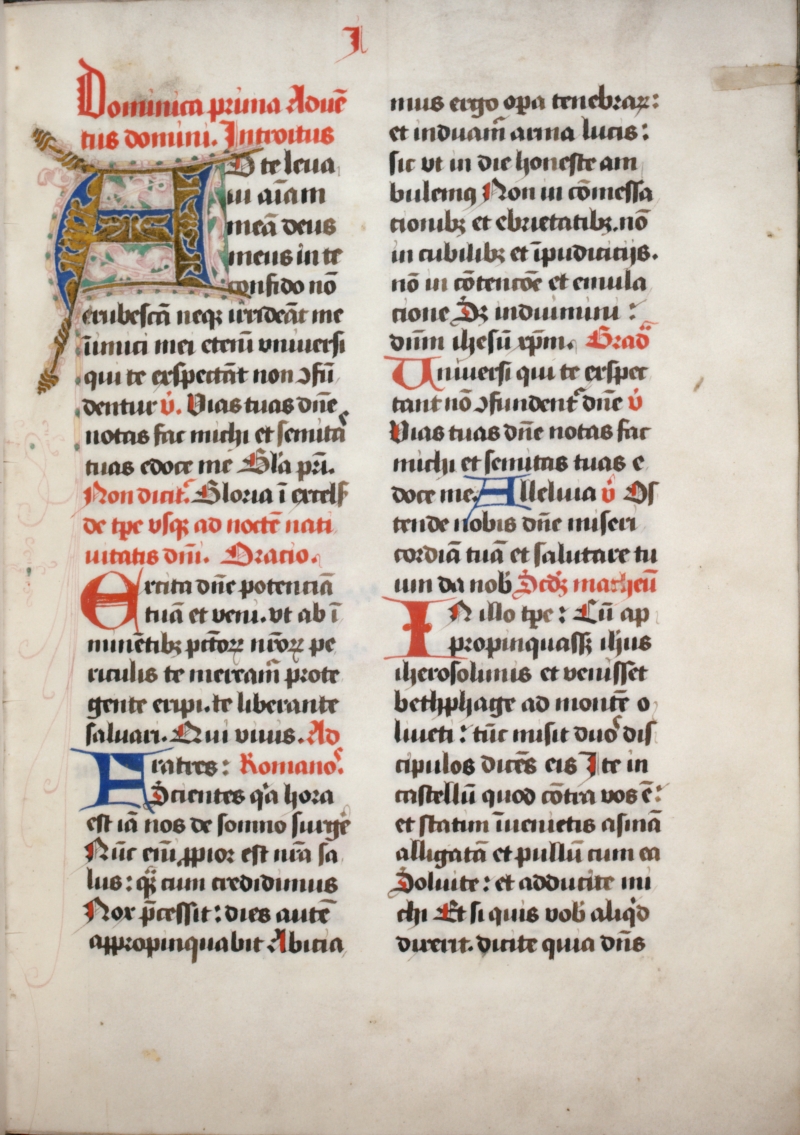 I
Dominica prima Aduē
tus domini. Introitus
AD te leua
ui aīam
meā deus
meus in te
confido nō
erubescā neqꝫ irrideāt me
inimici mei etenī vniuersi
qui te exspectāt non ↄfū
dentur v̄. Vias tuas dn̄e
notas fac michi et semitā
tuas edoce me Gl'a pr̄i.
Non dicit᷑ Gloria ī excels
de tp̄e vsqꝫ ad noctē nati
uitatis dn̄i. Oracio.
Excita dn̄e potenciā
tuā et veni. vt ab ī
minētibꝫ pctōꝝ nr̄oꝝ pe
riculis te meream̄ prote
gente eripi. te liberante
saluari. Qui viuis. Ad
Fratres: Romano᷑.
Scientes q'a hora
est iā nos de somno surge᷑
Nūc eim̄ ꝓpior est nr̄a sa
lus: qꝫ cum credidimus
Nox p̄cessit: dies autē
appropinquabit Abicia
mus ergo op̄a tenebraꝝ:
et induam̄ arma lucis:
sic vt in die honeste am
bulemꝯ Non in cōmessa
cionibꝫ et ebrietatibꝫ. nō
in cubilibꝫ et īpudicicijs.
nō in cōtencōe et emula
cione Sꝫ induimini:
dūm ihesū xp̄m. Grad᷑
Uniuersi qui te exspec
tant nō ↄfundent᷑ dn̄e v̄
Vias tuas dn̄e notas fac
michi et semitas tuas e
doce me. Alleluia v̄ Os
tende nobis dn̄e miseri
cordiā tuā et salutare tu
um da nob᷑ Scd̄ꝫ matheū
IN illo tp̄e: Cū ap
propinquass̄ ih̄us
iherosolimis et venisset
bethphage ad montē o
liueti: tūc misit duo᷑ dis
cipulos dicēs eis Ite in
castellū quod cōtra vos ē:
et statim īuenietis asinā
alligatā et pullū cum ea
Soluite: et adducite mi
chi Et si quis vob᷑ aliq'd
dixerit. dicite quia dn̄s